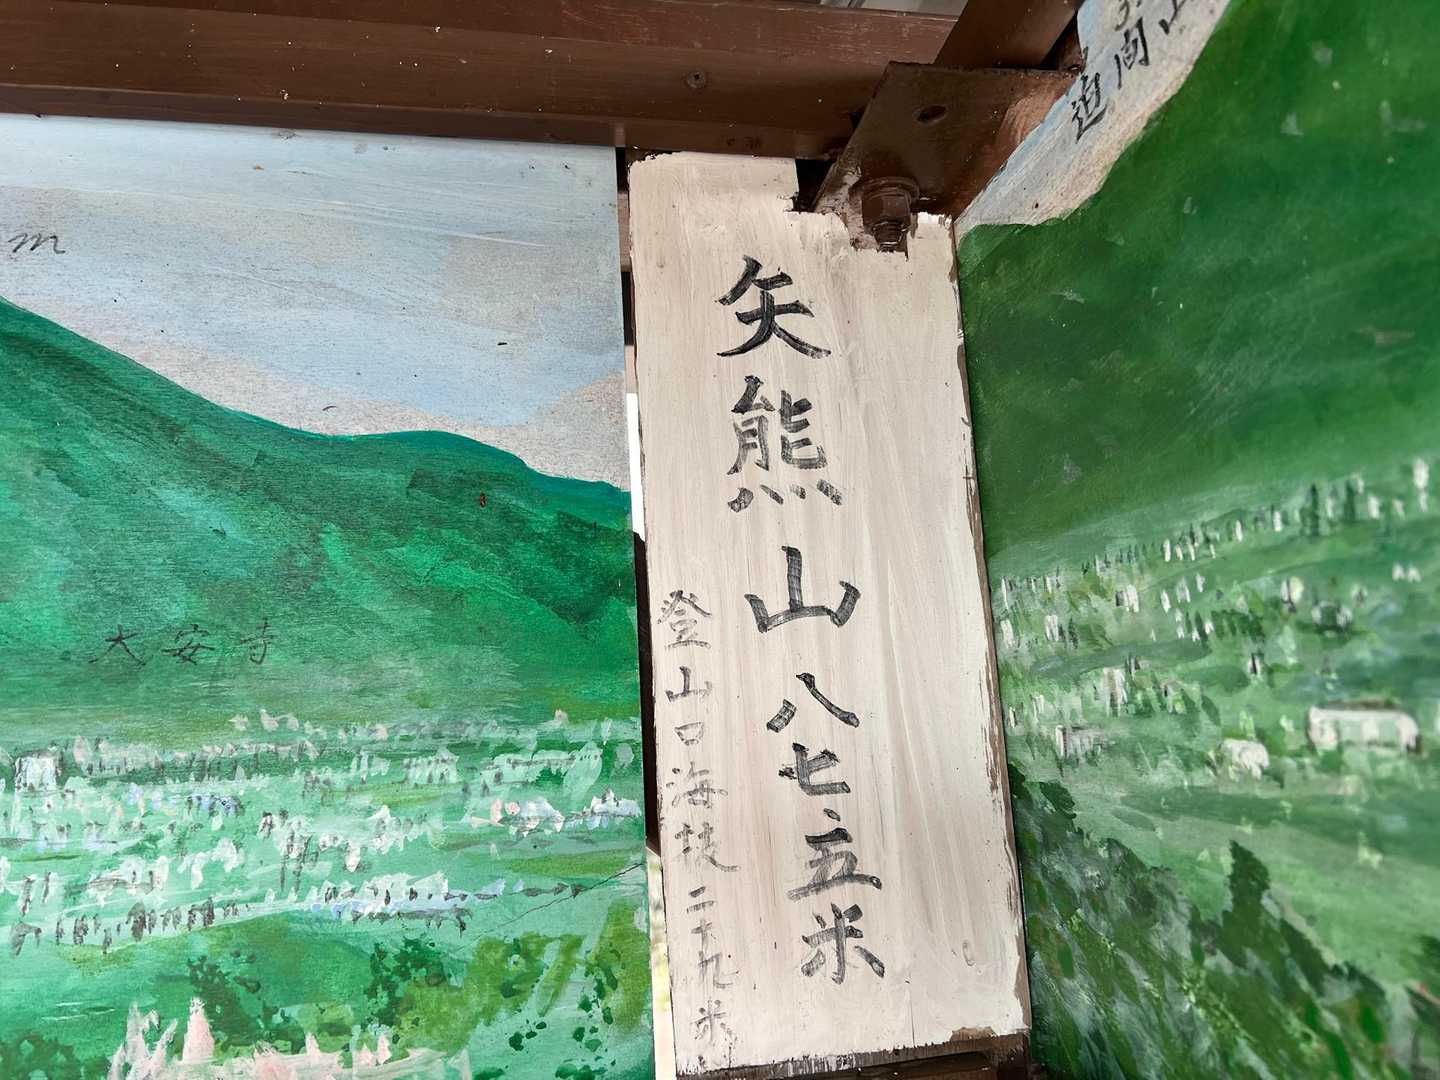 m
大安寺
矢熊山八七、五米
登山口海抜二十九米
迫間山